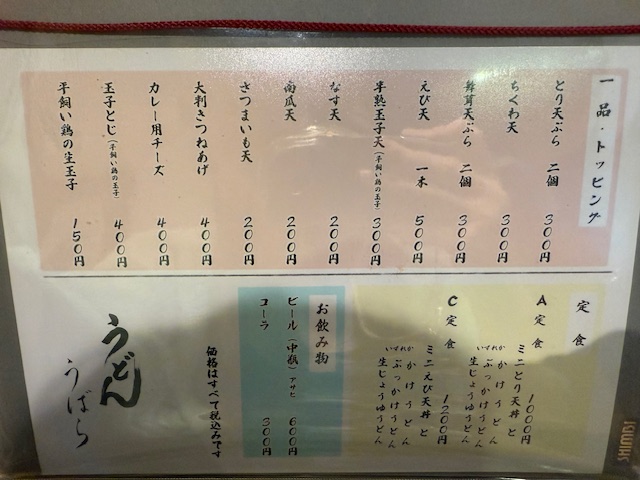 一品・トッピング
とり天ぷら 二個 300円
ちくわ天 300円
舞茸天ぷら 二個 300円
えび天 一本 500円
半熟玉子天（平飼い鶏の玉子） 300円
なす天 200円
南瓜天 200円
さつまいも天 200円
大判きつねあげ 400円
カレー用チーズ 400円
玉子とじ（平飼い鶏の玉子） 400円
平飼い鶏の生玉子 150円
定食
A定食 1000円
ミニとり天丼 と
いずれか
かけうどん
ぶっかけうどん
生じょうゆうどん
C定食 1200円
ミニえび天丼 と
いずれか
かけうどん
ぶっかけうどん
生じょうゆうどん
お飲み物
ビール（中瓶）アサヒ 600円
コーラ 300円
価格はすべて税込みです
うどん
うばら
SHIMBI